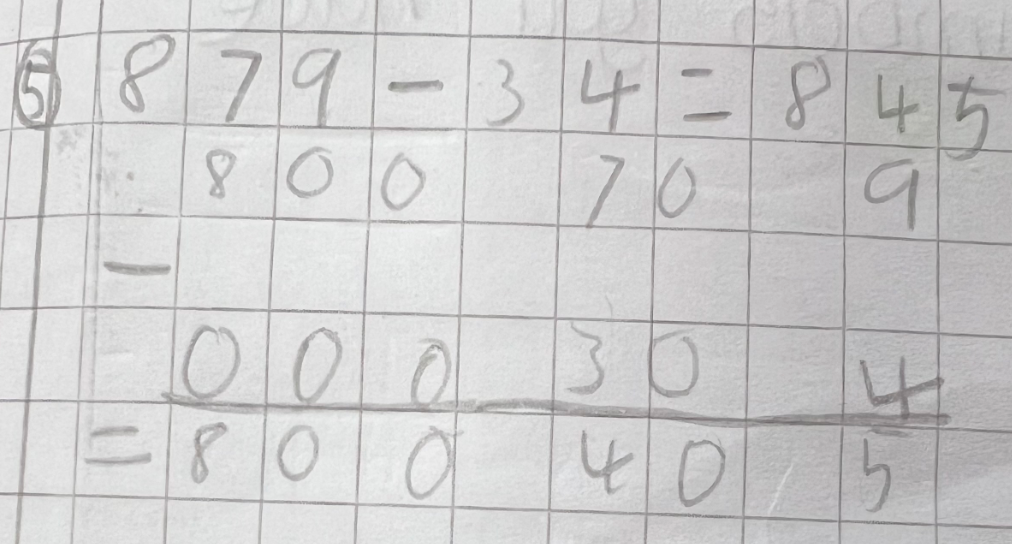 ⑤ 879-34=845
800 70 9
-
000 30 4
=800 40 5